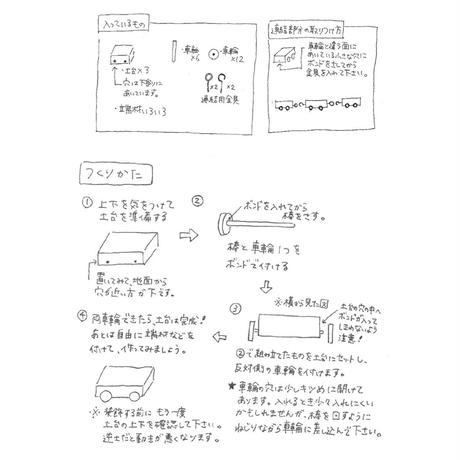 入っているもの
・土台×3
穴は下部分に
あいています。
・端材いろいろ
・車軸
×6
・車輪
×12
×2
×2
連結用金具
連結部分の取りつけ方
車輪と違う面に
あいている小さな穴に
ボンドをさしてから
金具を入れて下さい。
つくりかた
① 上下を気をつけて
土台を準備する
置いてみて、地面から
穴が近い方が下です。
②
ボンドを入れてから
棒をさす。
棒と車輪1つを
ボンドで付ける
③
※横から見た図
土台の穴の中へ
ボンドが入って
しまわないよう
注意!
②で組み立てたものを土台にセットし、
反対側の車輪を付けます。
★ 車輪の穴は少しキツめに開けて
あります。入れるとき少々入れにくい
かもしれませんが、棒を回すように
ねじりながら車輪に差し込んで下さい。
④ 両車輪できたら、土台は完成!
あとは自由に端材などを
付けて、作ってみましょう。
※ 接着する前にもう一度
土台の上下を確認して下さい。
逆だと動きが悪くなります。